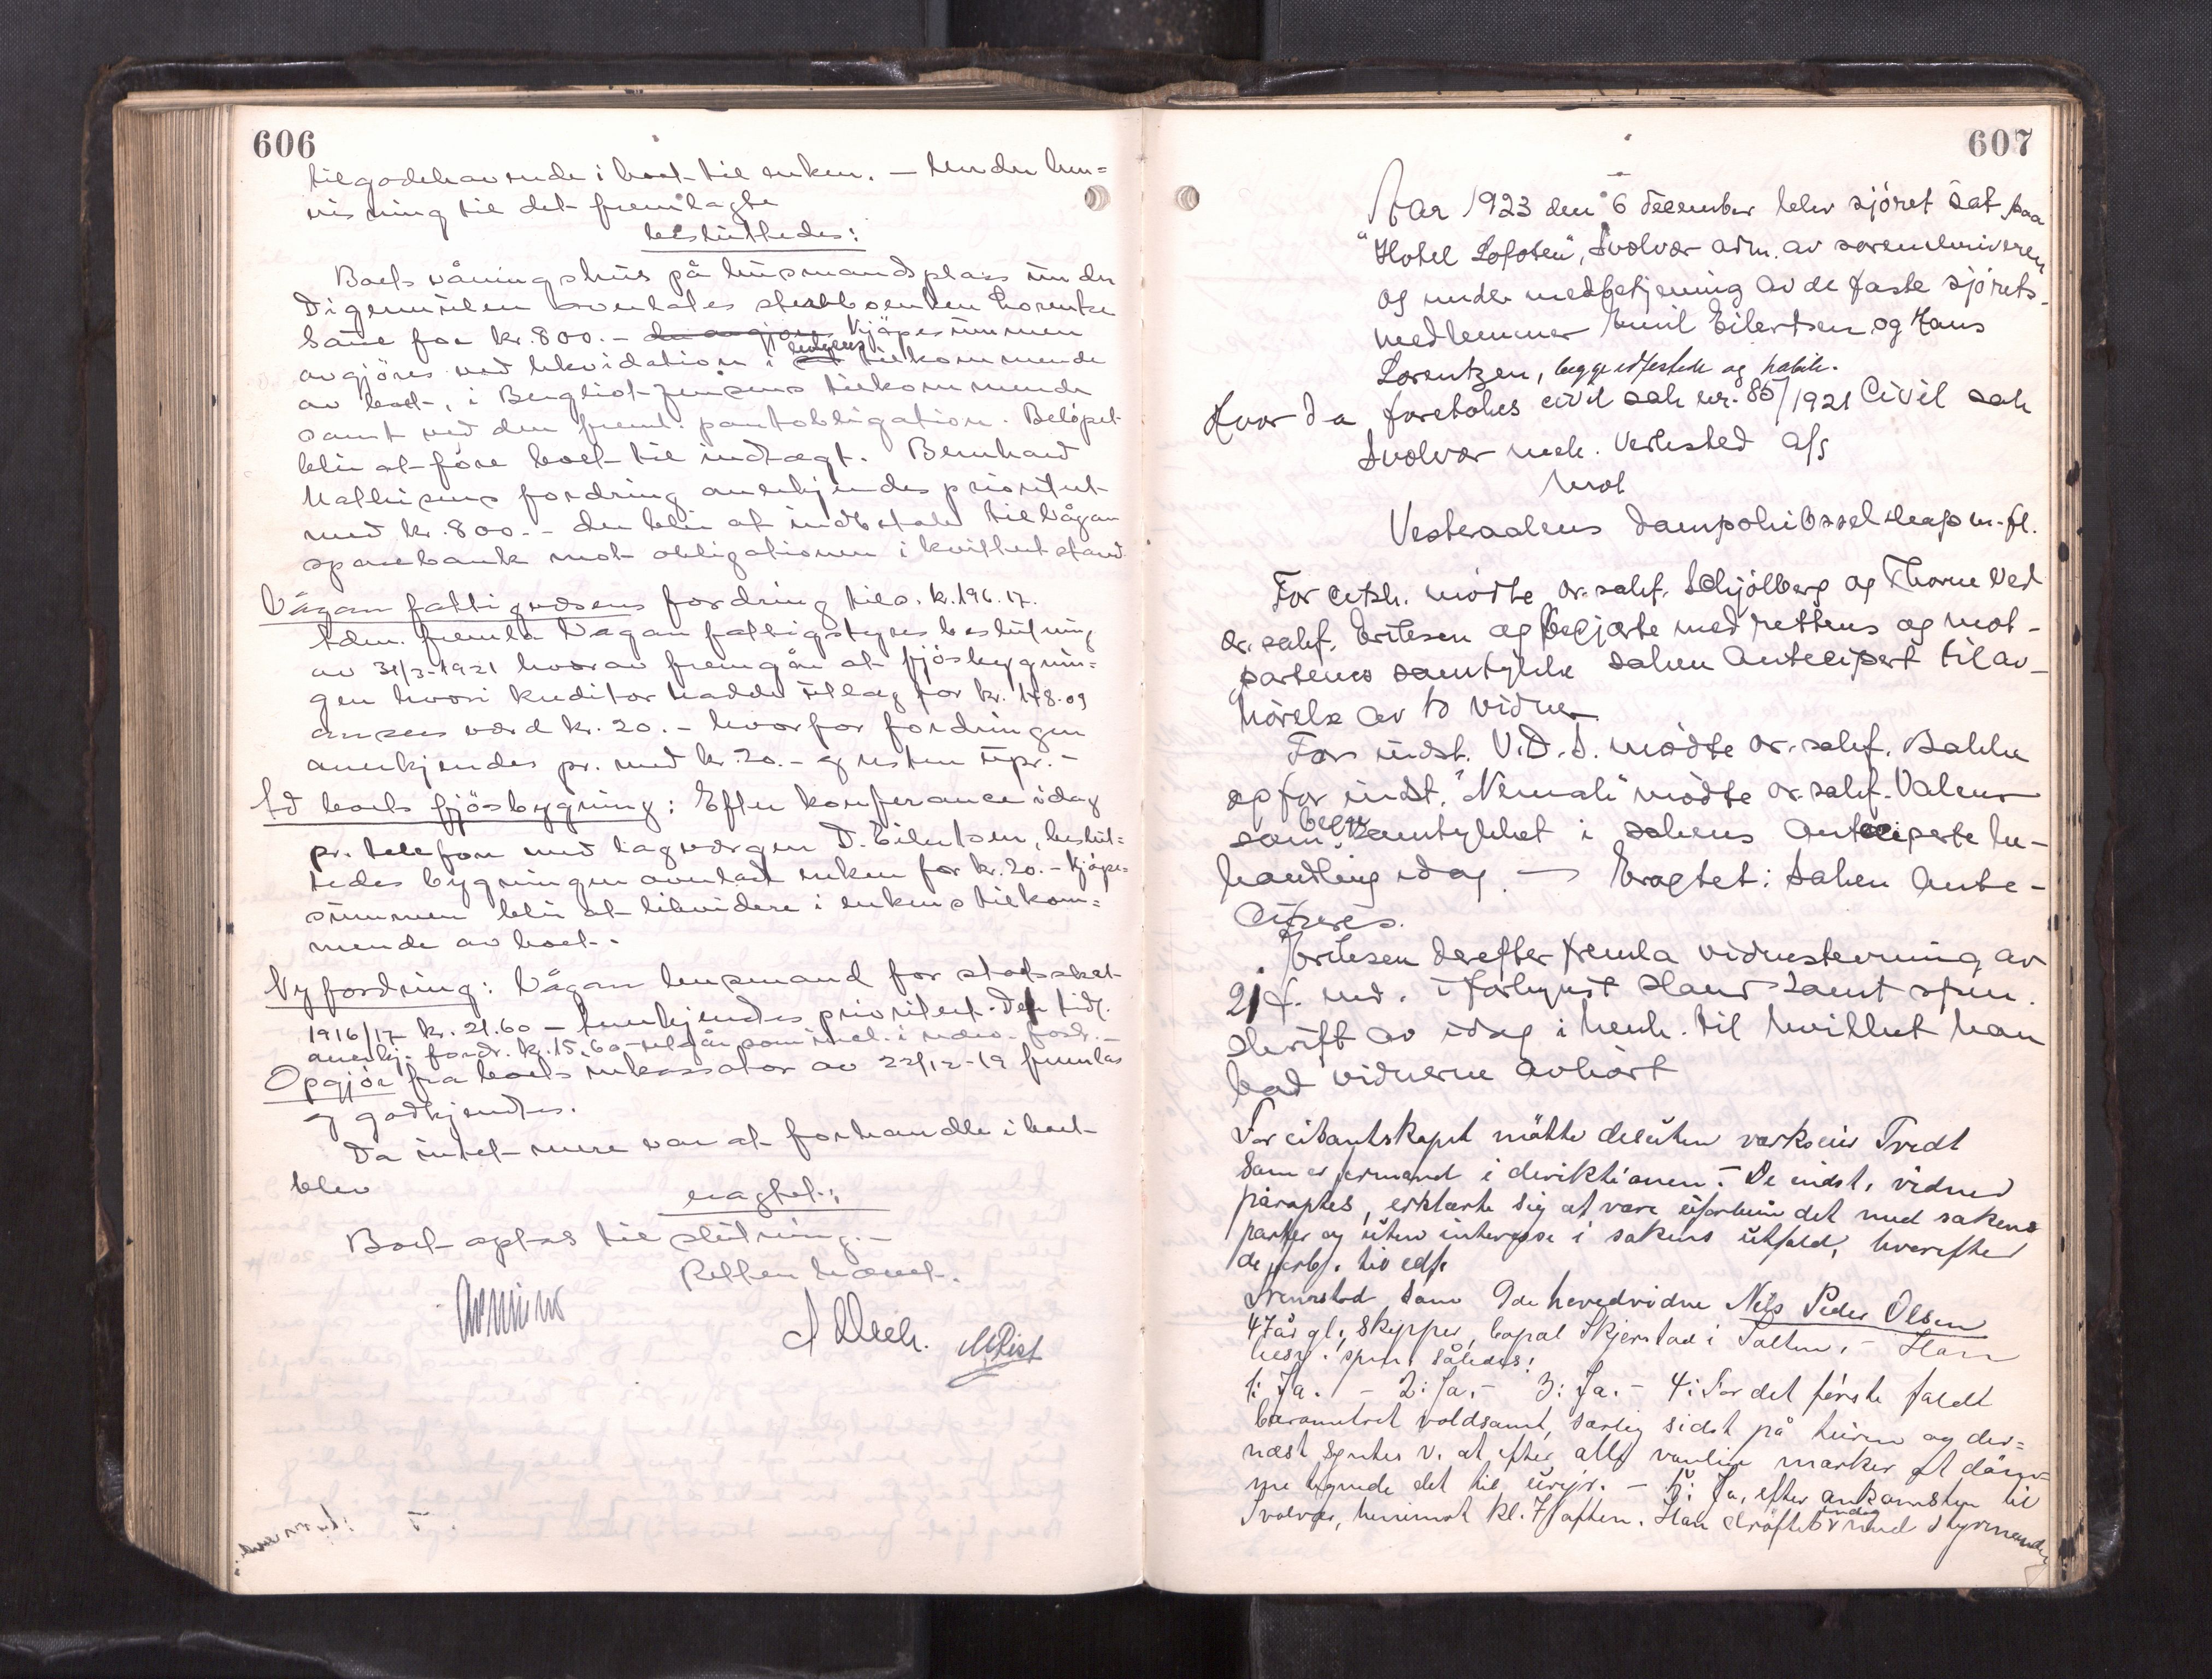 606
tilgodehavende i boet til enken. — Under hen=
visning til det fremlagte
besluttedes:
Boets våningshus på husmandsplass under
Digermulen overlates sterbboenken Lorentze
for kr. 800.- Kjøpesummen
avgjøres ved likvidation i enkens tilkommende
av boet, i Bergliot Jensens tilkommende
samt ved den freml. pantobligation. Beløpet
blir at føre boet til indtægt. Bernhard
fordring anerkjendes prioritert
med kr. 800.- der blir at indbetale til Vågan
sparebank mot obligationen i kvittert stand.
Vågan fattigvæsens fordring kr. 196.17.
Adm. fremla Vågan fattigstyres beslutning
av 31/3-1921 hvorav fremgår at fjøsbygnin=
gen hvori kreditor hadde utlæg for kr. 178.09
ansees værd kr. 20.- hvorfor fordringen
anerkjendes pr. med kr. 20.- og resten upr.-
Ad boets fjøsbygning: Efter konferance idag
pr. telefon med lagværgen D. Eilertsen, beslut=
tedes bygningen overlatt enken for kr. 20.- Kjøpe=
summen blir at likvidere i enkens tilkom=
mende av boet.-
Ny fordring: Vågan lensmand for statsskat
1916/17 kr. 21.60 — Anerkjendes prioritert. Den tidl.
anerkj. fordr. kr. 15.60 utgår som inkl. i fordr.-
Opgjør fra boets inkassator av 22/12-19 fremlas
og godkjendtes.
Da intet mere var at forhandle i boet
blev
eragtet:
Boet optas til slutning.-
Retten hævet.
607
Aar 1923 den 6 december blev sjøret sat paa
"Hotel Lofoten", Svolvær adm. av sorenskriveren
og under medbetjening av de faste sjørets-
medlemmer Emil Eilertsen og Hans
Lorentzen, begge edfestede og habile.
Hvor da foretokes civil sak nr. 85/1921 Civil sak
Svolvær mek. verksted A/S
mot
Vesteraalens Dampskibsselskap m.fl.
For citsk. mødte or. sakf. Schjølberg og Thorne ved
or. sakf. Eriksen og begjærte med rettens og mot-
partenes samtykke saken antecipert til av-
hørelse av to vidner
For indst. V.D.S. mødte or. sakf. Bakke
og for indst. "Nemah" mødte or. sakf. Valeur
som begge samtykket i sakens anteciperte be-
handling idag. — Eragtet: Saken ante-
ciperes.
Eriksen derefter fremla vidnestevning av
21 f. md. i forkynt stand samt spm.
skrift av idag i henh. til hvilket han
bad vidnerne avhørt
For citantskapet møtte desuten verkseier Tvedt
som er formand i direktionen. – De indst. vidner
påroptes, erklærte sig at være uforbundet med sakens
parter og uten interesse i sakens utfald, hvorefter
de forb. til edf.
Fremstod som 9de hovedvidne Nils Peder Olsen
47 år gl., skipper, bopæl Skjerstad i Salten. – Han
besv. spm. således:
1: Ja. – 2: Ja. – 3: Ja. – 4: For det første faldt
barometret voldsomt, særlig sidst på turen og der=
næst syntes v. at efter alle vanlige merker at døm-
me tegnede det til uveir. – 5: Ja, efter ankomsten til
Svolvær, henimot kl. 7 aften. Han drøftet endog v med styrmanden